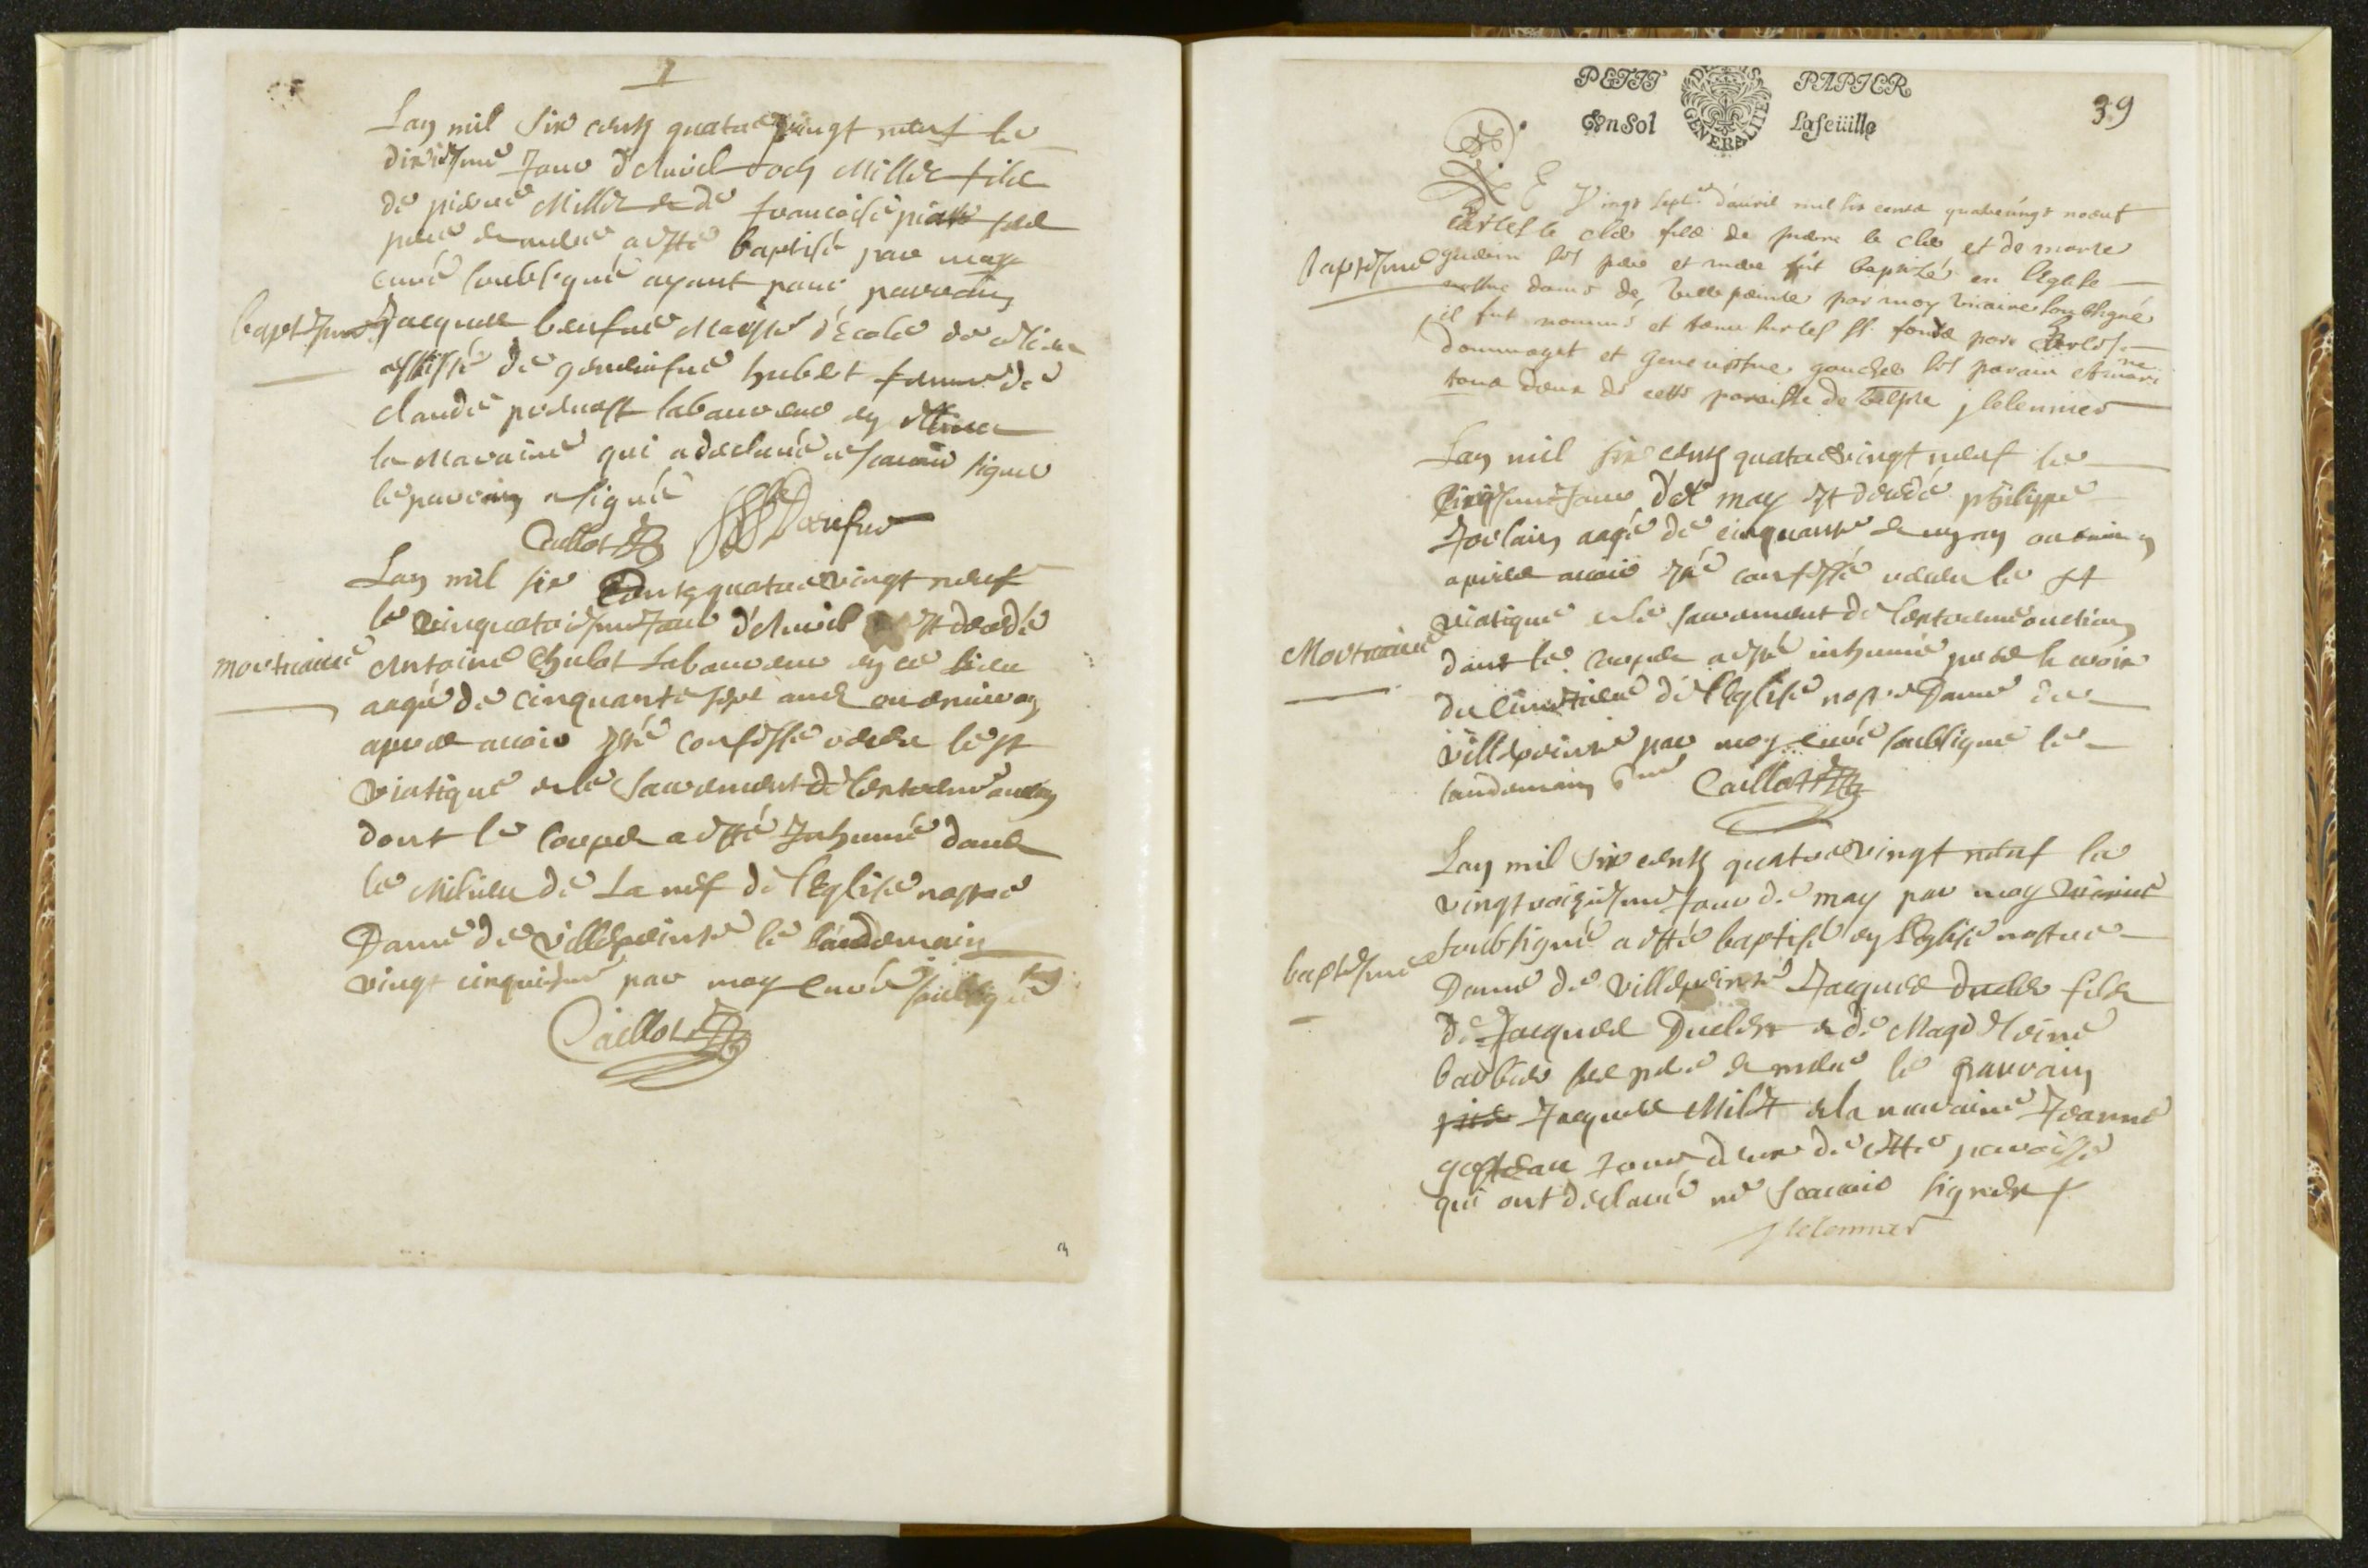 1
Lan mil six cents quatrevingt neuf le
dixiesme Jour d'Auril Roch Millet fils
de pierre Millet et de francoise ses
pere et mere a esté baptisé par moy
curé soubsigné ayant pour parrain
baptesme Jacques Maistre d'Ecole de ce lieu
assisté de geneviefue hubert femme de
claude laboureur en ce lieu
la Maraine qui a declaré ne scauoir signer
le parrain a signé
Caillot
Lan mil six Cents quatre vingt neuf
le vinquatriesme Jour d'Auril est decedé
mortuaire Antoine Chulot Laboureur en ce lieu
aagé de cinquante sept ans ou enuiron
apres auoir esté confessé receu le st
viatique et le sacrement de l'extreme onction
dont le corps a esté Inhumé dans
le Milieu de La nef de l'Eglise nostre
Dame de Villepeinte le landemain
vingt cinquiesme par moy curé soubsigné
Caillot
PETIT PAPIER
En Sol La feüille
GENERALITE
39
LE Vingt sept.e d'auril mil six cents quatreuingt noeuf
Carles le cler fils de pierre le cler et de marie
baptesme ses pere et mere fut baptizé en l'église
nostre dame de Villepeinte par moy vicaire soubsigné
il fut nommé et tenu sur les sts fonds par
Dommaget et geneuiefue ses parain et maraine
tous deux de cette paroisse de J lelennier
Lan mil six cents quatre vingt neuf le
Cinquiesme Jour de may est decedé philippe
Joclain aagé de cinquante et un an ou enuiron
apres auoir esté confessé receu le st
viatique et le sacrement de l'extreme onction
Mortuaire dont le corps a esté inhumé
du cimetiere de l'Eglise nostre Dame de
Villepeinte par moy curé soubsigné le
landemain 6me Caillot
Lan mil six cents quatre vingt neuf le
vingt troisiesme Jour de may par moy vicaire
soubsigné a esté baptisé en l'Eglise nostre
baptesme Dame de Villepeinte Jacques Duclos fils
de Jacques et de Magdeleine
barbier ses pere et mere le parrain
Jacques Millet et la maraine Jeanne
gasteau tous deux de cette paroisse
qui ont declaré ne scauoir signer
J lelennier